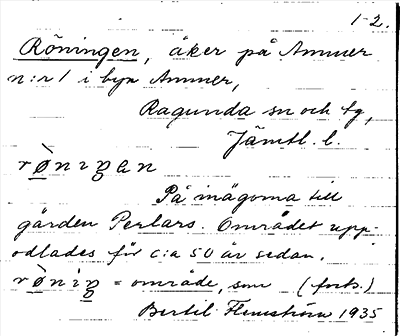 1-2.
Röningen, åker på Ammer
n:r 1 i byn Ammer,
Ragunda sn och tg,
Jämtl. l.
rø̀nıŋan
På inägorna till
gården Perlars. Området upp-
odlades för c:a 50 år sedan.
rø̀nıŋ = område, som (forts.)
Bertil Flemström 1935